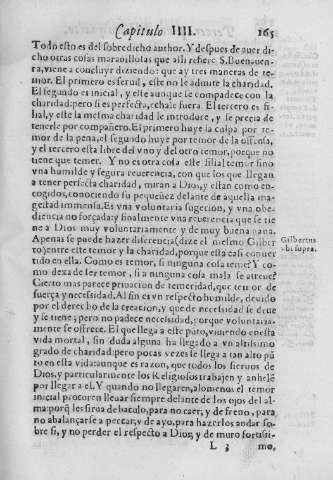 Capitulo IIII. 165
Todo esto es del sobredicho author. Y despues de auer di
cho otras cosas marauillosas que alli refiere S. Buenauen-
ra, viene a concluyr diziendo: que ay tres maneras de te-
mor. El primero es seruil, este no le admite la charidad.
El segundo es inicial, y este aunque se compadece con la
charidad: pero si es perfecta, echale fuera. El tercero es fi-
lial, y este la mesma charidad le introduce, y se precia de
tenerle por compañero. El primero huye la culpa por te-
mor de la pena, el segundo huye por temor de la offensa,
y el tercero esta libre del vno y del otro temor, porque no
tiene que temer. Y no es otra cosa este filial temor sino
vna humilde y segura reuerencia, con que los que llegan
a tener perfecta charidad, miran a Dios, y estan como en-
cogidos, conociendo su pequeñez delante de aquella ma-
gestad immensa. Es vna voluntaria sugecion, y vna obe-
diencia no forçada: y finalmente vna reuerencia que se tie
ne a Dios muy voluntariamente y de muy buena gana.
Apenas se puede hazer diferencia (dize el mesmo Gilber
to) entre este temor y la charidad, porque esta casi conuer
tido en ella. Como es temor, si ninguna cosa teme? Y co-
mo dexa de ser temor, si a ninguna cosa mala se atreue?
Cierto mas parece priuacion de temeridad, que temor de
fuerça y necessidad. Al fin es vn respecto humilde, deuido
por el derecho de la creacion, y que de necessidad se deue
y se tiene; pero no padece necessidad; porque voluntaria-
mente se offrece. El que llega a este puto, viuiendo en esta
vida mortal, sin duda alguna ha llegado a vn altissimo
grado de charidad: pero pocas vezes se llega a tan alto pũ
to en esta vida: aunque es razon, que todos los sieruos de
Dios, y particularmente los Religiosos trabajen y anhelẽ
por llegar a el. Y quando no llegaren, alomenos el temor
inicial procuren lleuar siempre delante de los ojos del al-
ma: porq̃ les sirua de baculo, para no caer, y de freno, para
no abalançarse a peccar, y de ayo, para hazerlos andar so-
bre si, y no perder el respecto a Dios; y de muro fortissi-
L 3 mo,
Gilbertus
vbi supra.